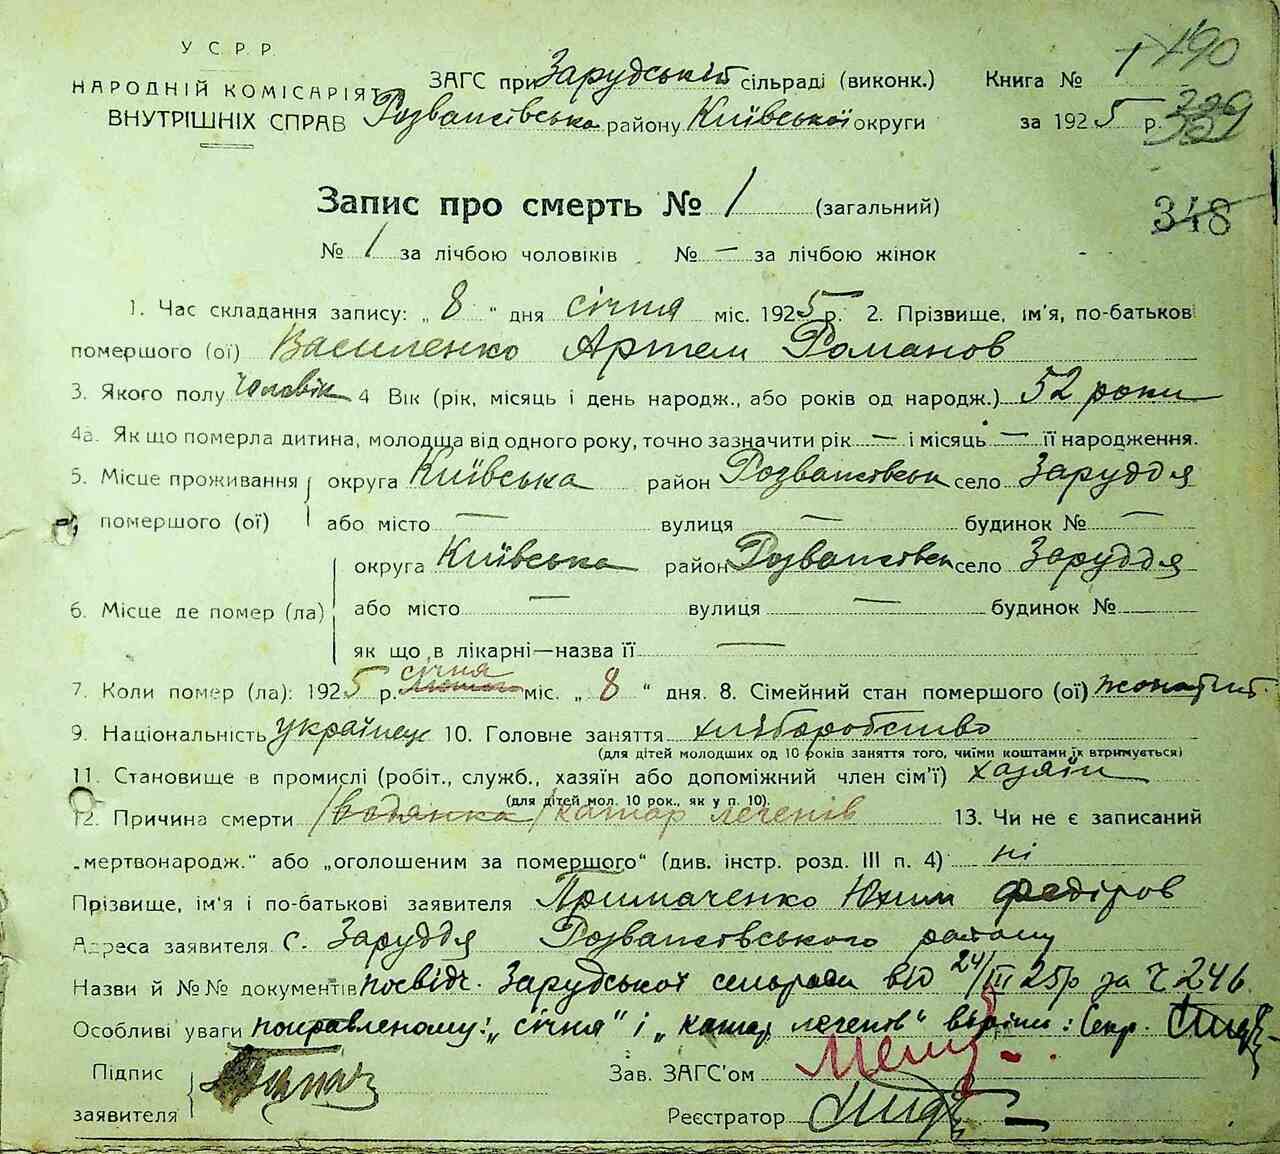 У С Р Р
НАРОДНІЙ КОМІСАРІЯТ
ВНУТРІШНІХ СПРАВ
ЗАГС при Зарудській сільраді (виконк.)
Розважівська району Київської округи
Книга № 1 190
за 1925 р. 329
348
Запис про смерть № 1 (загальний)
№ 1 за лічбою чоловіків № — за лічбою жінок
1. Час складання запису: „ 8 " дня січня міс. 1925 р. 2. Прізвище, ім'я, по-батькові
помершого (ої) Василенко Артем Романов
3. Якого полу чоловік 4 Вік (рік, місяць і день народж., або років од народж.) 52 роки
4а. Як що померла дитина, молодща від одного року, точно зазначити рік — і місяць — її народження.
5. Місце проживання округа Київська район Розважівськ село Заруддя
помершого (ої) або місто — вулиця — будинок № —
округа Київська район Розважівськ село Заруддя
6. Місце де помер (ла) або місто — вулиця — будинок №
як що в лікарні—назва її —
січня
7. Коли помер (ла): 1925 р. лютого міс. „ 8 " дня. 8. Сімейний стан помершого (ої) жонатий.
9. Національність українець 10. Головне заняття хліборобство
(для дітей молодших од 10 років заняття того, чиїми коштами їх втримується)
11. Становище в промислі (робіт., служб., хазяїн або допоміжний член сім'ї) хазяїн
(для дітей мол. 10 рок., як у п. 10).
12. Причина смерти /водянка/ катар легенів 13. Чи не є записаний
„мертвонародж." або „оголошеним за помершого" (див. інстр. розд. III п. 4) ні
Прізвище, ім'я і по-батькові заявителя Примаченко Юхим Федіров
Адреса заявителя с. Заруддя Розважівського району
Назви й №№ документів посвідч. Зарудської сельради від 24/III 25р за Ч 246.
Особліві уваги поправленому: „січня" і „катар легенів" вірити: Секр.
Підпис
заявителя
Зав. ЗАГС'ом
Реєстратор